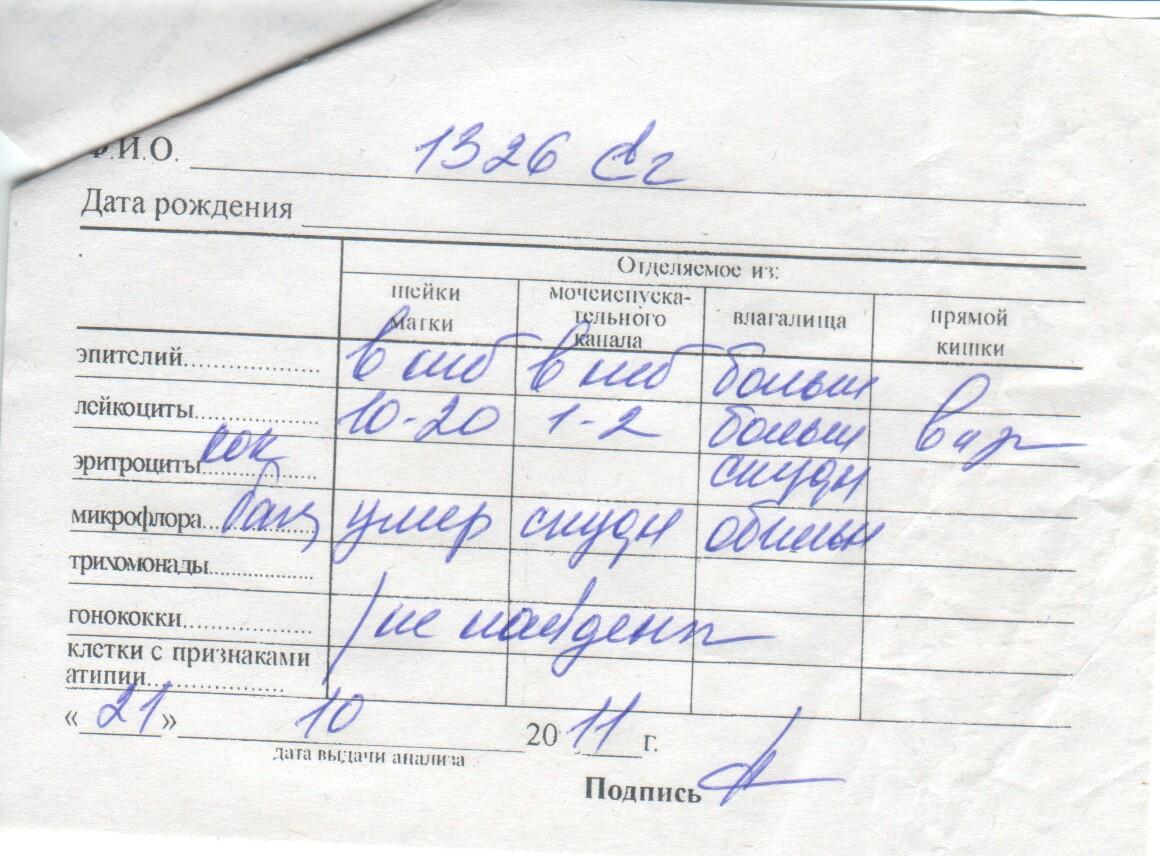 Ф.И.О. 1326
Дата рождения
Отделяемое из:
шейки матки
мочеиспуска-
тельного
канала
влагалища
прямой
кишки
эпителий в п/зб в п/зб больш
лейкоциты 10-20 1-2 больш
эритроциты кок скудн
микрофлора бац умер скудн обильн
трихомонады
гонококки не найдены
клетки с признаками
атипии
« 21 » 10 20 11 г.
дата выдачи анализа
Подпись